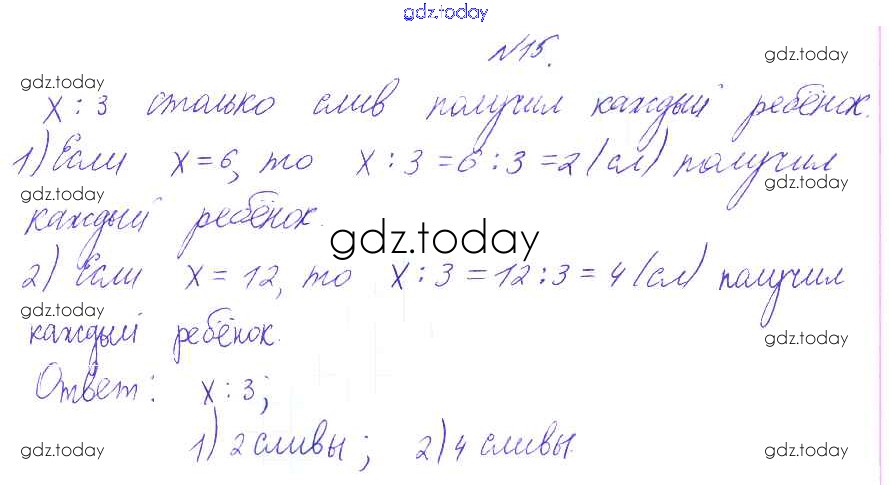 gdz.today
№15.
gdz.today
gdz.today
x : 3 столько слив получил каждый ребёнок.
1) Если x = 6, то x : 3 = 6 : 3 = 2 (сл) получил
gdz.today
gdz.today
каждый ребёнок.
gdz.today
2) Если x = 12, то x : 3 = 12 : 3 = 4 (сл) получил
gdz.today
каждый ребёнок.
gdz.today
Ответ: x : 3;
1) 2 сливы; 2) 4 сливы.
gdz.today
gdz.today